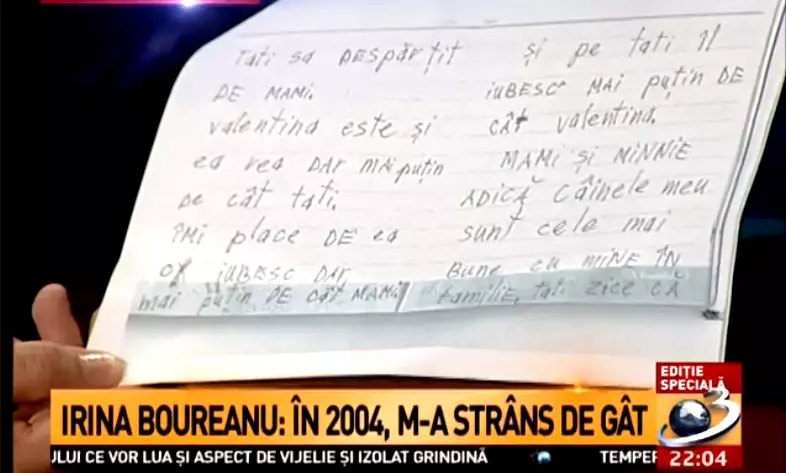 Tati sa DESPĂRȚIT
DE MAMI.
valentina este și
ea rea DAR MAI puțin
DE cât tati.
ÎMI place DE ea
o iuBESC DAR
mai puțin DE cât MAMi
și pe tati îl
iuBESC MAI puțin DE
CÂt valentina.
MAMi și MiNNiE
ADICĂ CâiNele meu
sunt cele mai
Bune cu MiNE ÎN
familiE, tati zice CĂ
EDIȚIE
SPECIALĂ
3
IRINA BOUREANU: ÎN 2004, M-A STRÂNS DE GÂT
ULUI CE VOR LUA ȘI ASPECT DE VIJELIE ȘI IZOLAT GRINDINĂ TEMPER
22:04